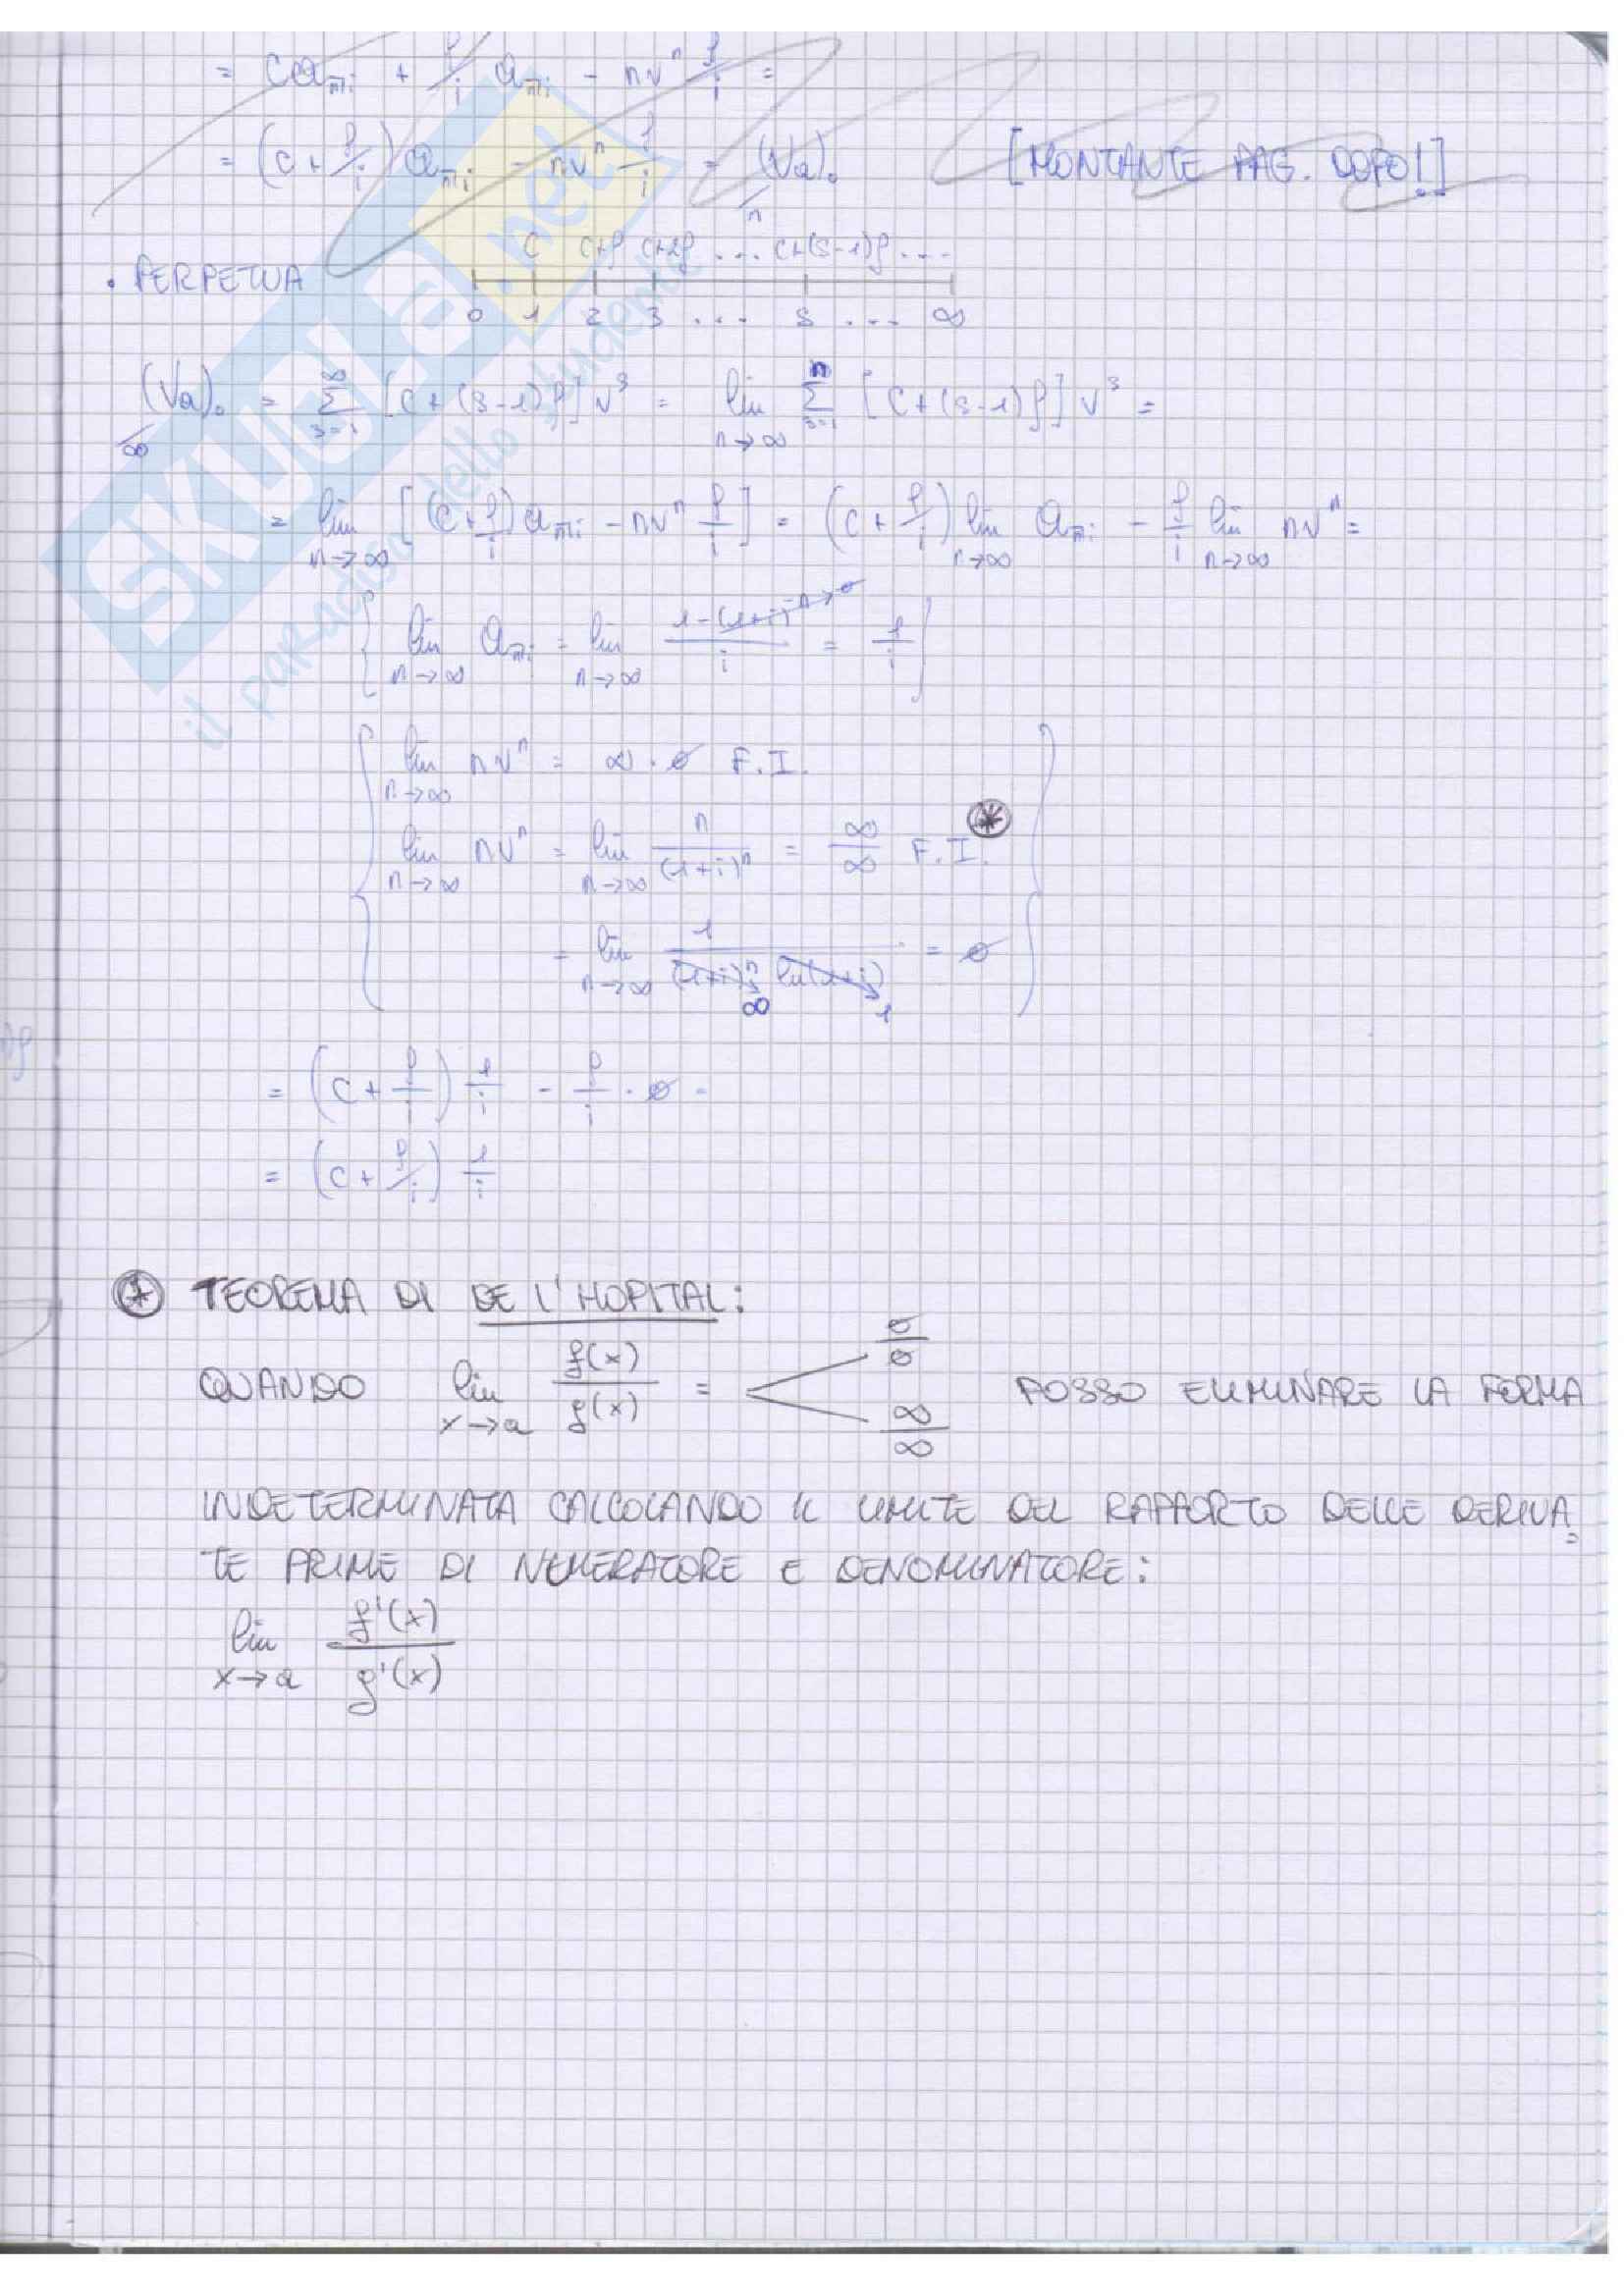 = C a_n̅|i + ρ/i a_n̅|i - n v^n ρ/i =
= (C + ρ/i) a_n̅|i - n v^n ρ/i = /n (Va)₀ [MONTANTE PAG. DOPO!]
C C+ρ C+2ρ ... C+(s-1)ρ ...
• PERPETUA
0 1 2 3 ... s ... ∞
/∞ (Va)₀ = Σ_{s=1}^{∞} [C + (s-1)ρ] v^s = lim_{n→∞} Σ_{s=1}^{n} [C + (s-1)ρ] v^s =
= lim_{n→∞} [(C + ρ/i) a_n̅|i - n v^n ρ/i] = (C + ρ/i) lim_{n→∞} a_n̅|i - ρ/i lim_{n→∞} n v^n =
{ lim_{n→∞} a_n̅|i = lim_{n→∞} (1 - (1+i)^{-n} → 0) / i = 1/i }
{ lim_{n→∞} n v^n = ∞ · 0 F.I.
lim_{n→∞} n v^n = lim_{n→∞} n / (1+i)^n = ∞/∞ F.I. *
= lim_{n→∞} 1 / ((1+i)^n ln(1+i)) = 0 }
∞ 1
= (C + ρ/i) 1/i - ρ/i · 0 =
= (C + ρ/i) 1/i
* TEOREMA DI DE L'HOPITAL:
QUANDO lim_{x→a} f(x)/g(x) = < 0/0 ∞/∞ POSSO ELIMINARE LA FORMA
INDETERMINATA CALCOLANDO IL LIMITE DEL RAPPORTO DELLE DERIVA=
TE PRIME DI NUMERATORE E DENOMINATORE:
lim_{x→a} f'(x)/g'(x)
SKUOLA.net
il paradiso dello studente